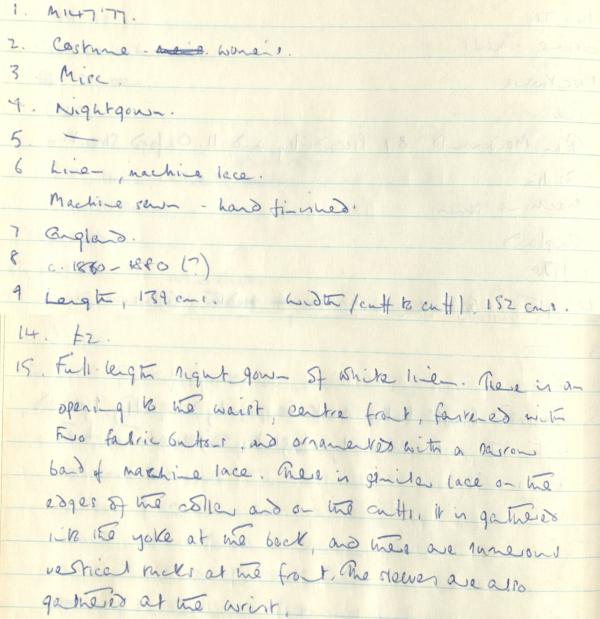 1. M147'77.
2. Costume - women's.
3 Misc.
4. Nightgown.
5. —
6 Linen, machine lace.
Machine sewn - hand finished.
7 England.
8 c. 1860-1880 (?)
9 Length, 139 cms. Width (cuff to cuff). 152 cms.
14. £2.
15. Full-length nightgown of white linen. There is an
opening to the waist, centre front, fastened with
two fabric buttons, and ornamented with a narrow
band of machine lace. There is similar lace on the
edges of the collar and on the cuffs. It is gathered
into the yoke at the back, and there are numerous
vertical tucks at the front. The sleeves are also
gathered at the wrist.